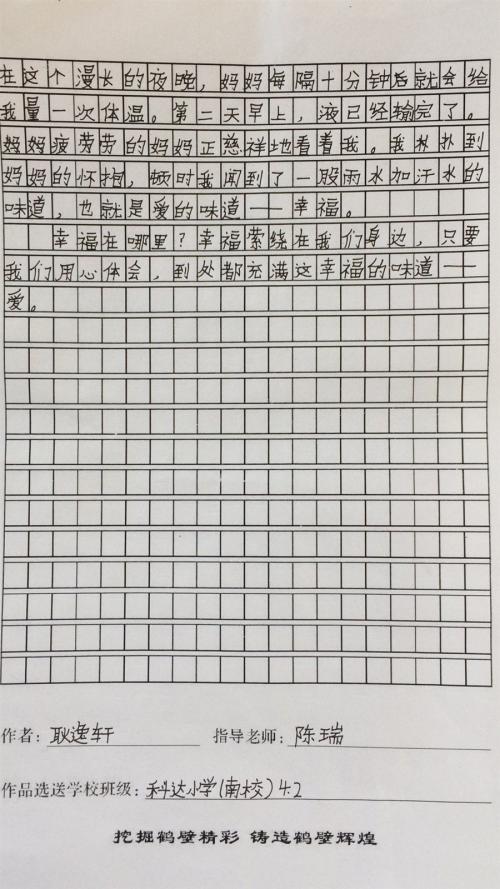 在这个漫长的夜晚，妈妈每隔十分钟后就会给
我量一次体温。第二天早上，液已经输完了。
妈妈疲劳劳的妈妈正慈祥地看着我。我扑到
妈妈的怀抱，顿时我闻到了一股雨水加汗水的
味道，也就是爱的味道——幸福。
幸福在哪里？幸福萦绕在我们身边，只要
我们用心体会，到处都充满这幸福的味道——
爱。
作者：耿逸轩 指导老师：陈瑞
作品选送学校班级：科达小学(南校)4.2
挖掘鹤壁精彩 铸造鹤壁辉煌